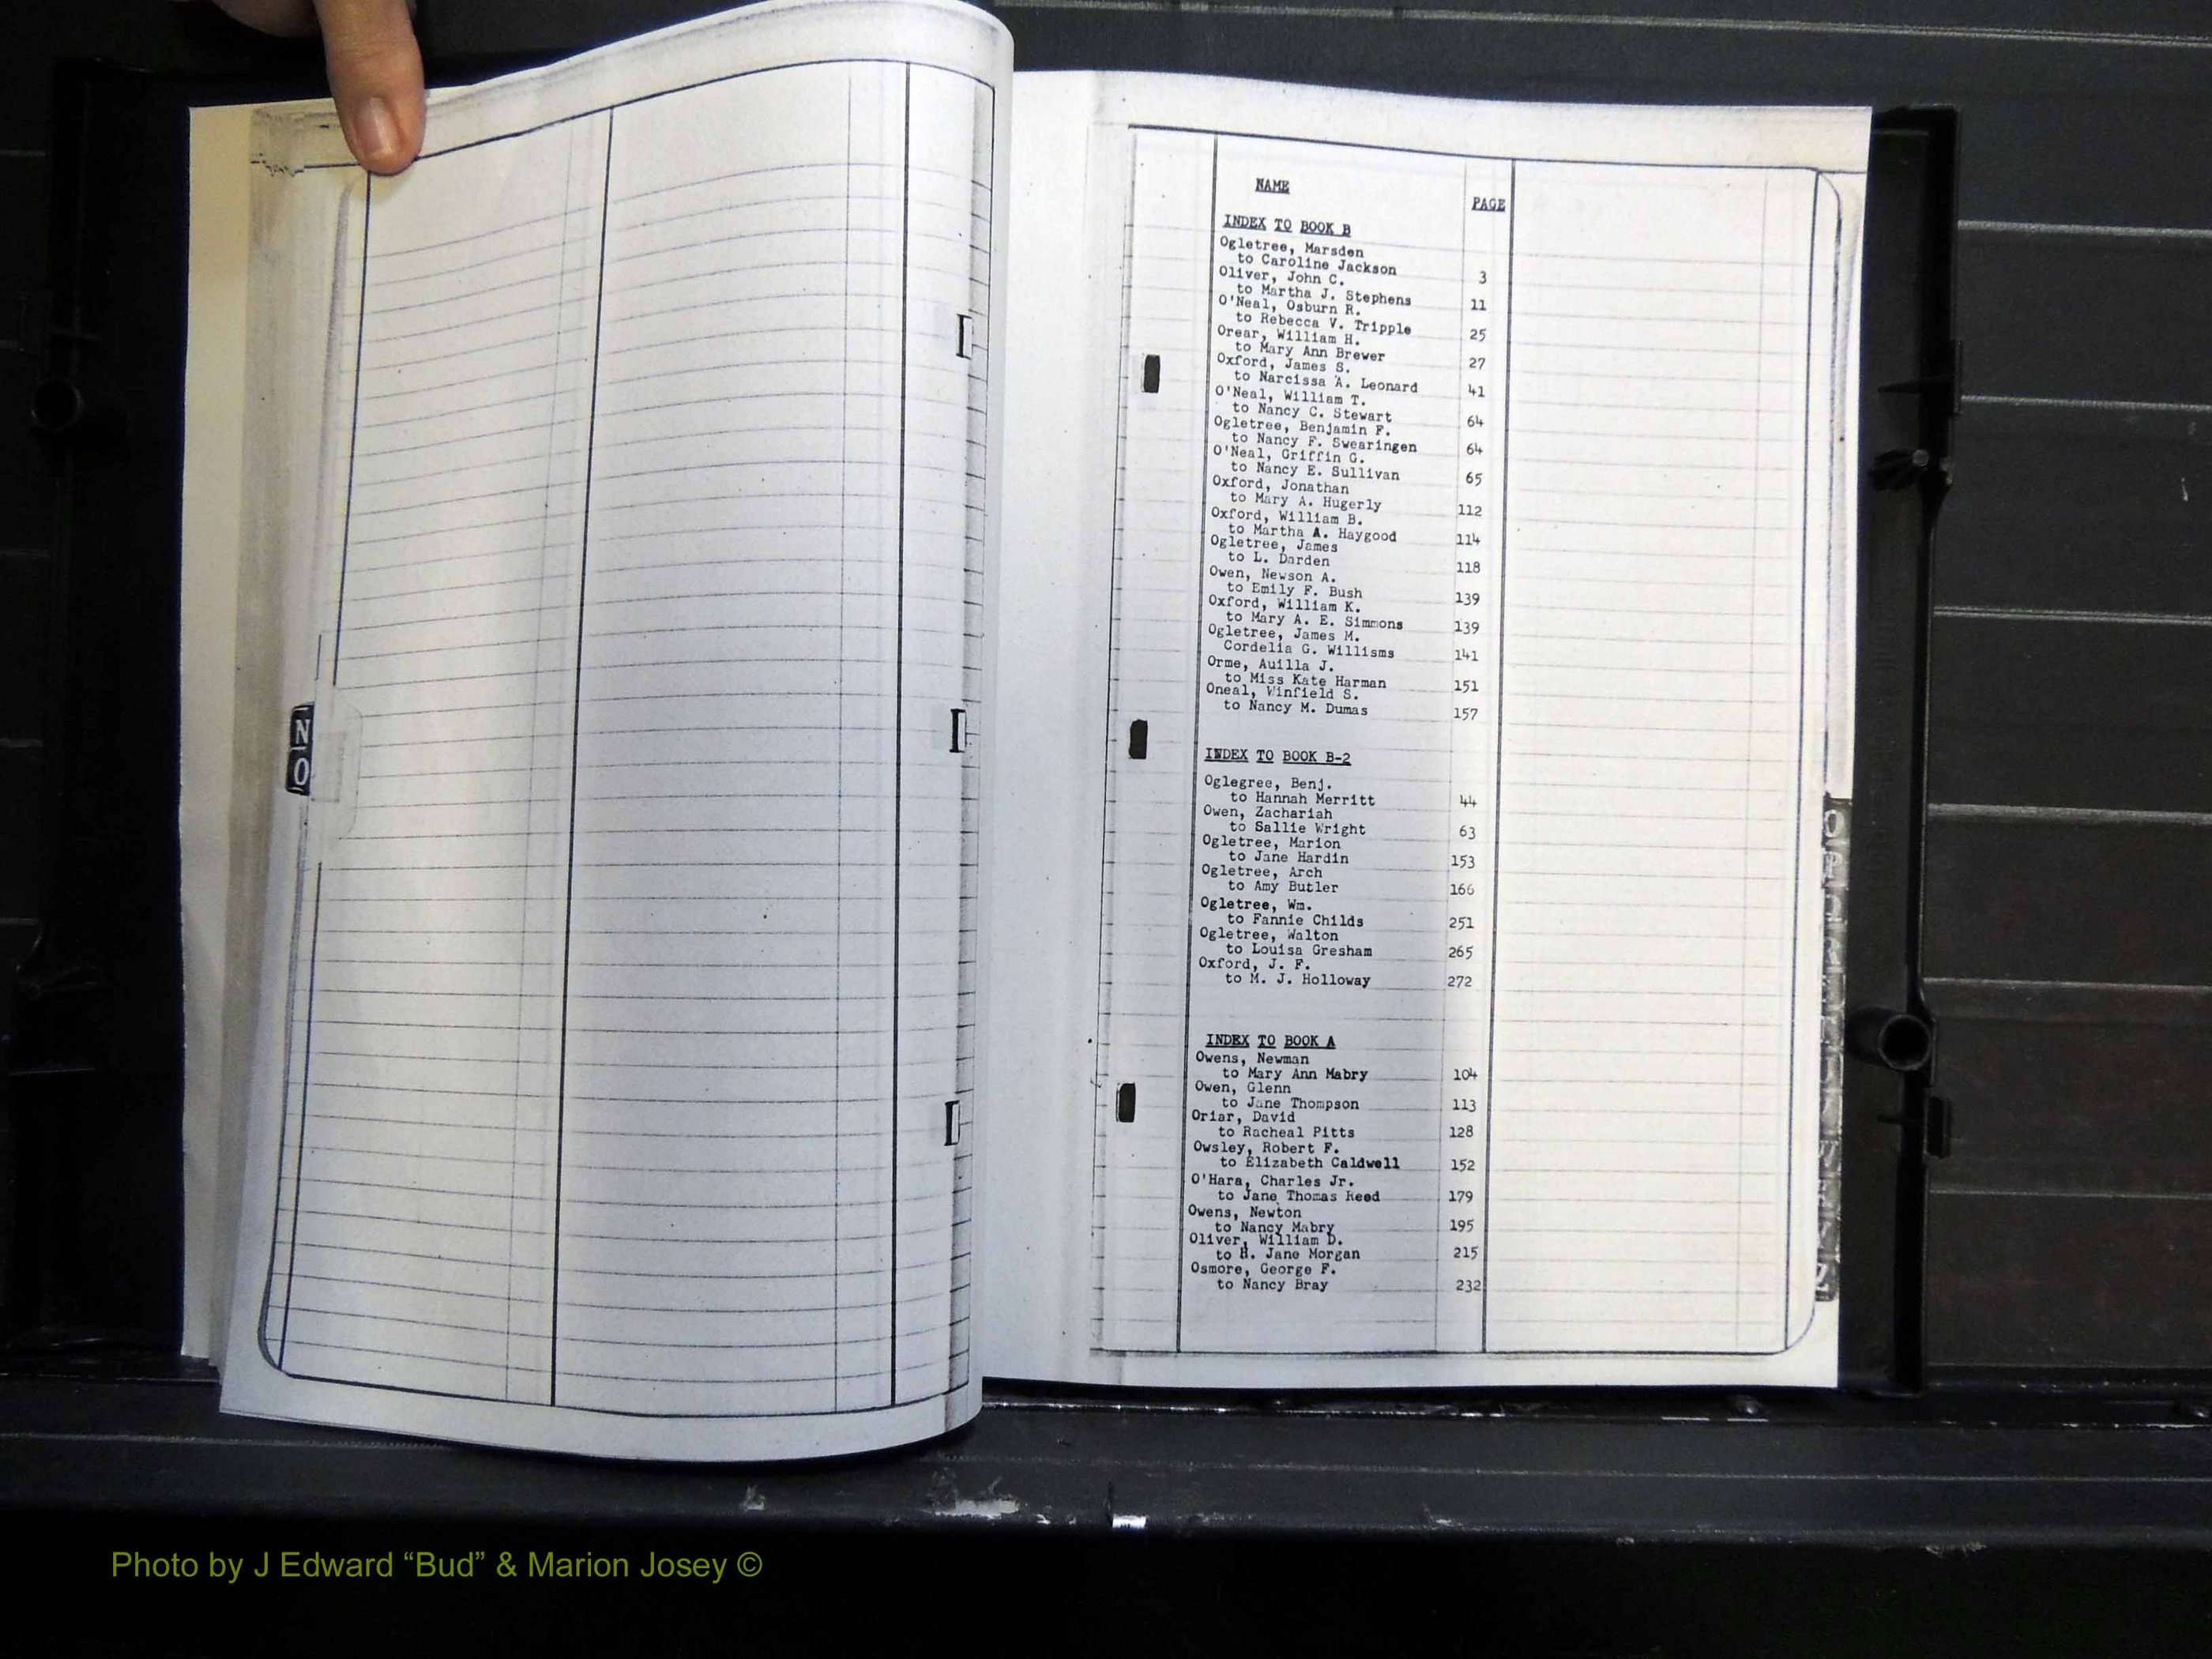 NAME PAGE
INDEX TO BOOK B
Ogletree, Marsden
to Caroline Jackson 3
Oliver, John C.
to Martha J. Stephens 11
O'Neal, Osburn R.
to Rebecca V. Tripple 25
Orear, William H.
to Mary Ann Brewer 27
Oxford, James S.
to Narcissa A. Leonard 41
O'Neal, William T.
to Nancy C. Stewart 64
Ogletree, Benjamin F.
to Nancy F. Swearingen 64
O'Neal, Griffin G.
to Nancy E. Sullivan 65
Oxford, Jonathan
to Mary A. Hugerly 112
Oxford, William B.
to Martha A. Haygood 114
Ogletree, James
to L. Darden 118
Owen, Newson A.
to Emily F. Bush 139
Oxford, William K.
to Mary A. E. Simmons 139
Ogletree, James M.
Cordelia G. Willisms 141
Orme, Auilla J.
to Miss Kate Harman 151
Oneal, Winfield S.
to Nancy M. Dumas 157
INDEX TO BOOK B-2
Oglegree, Benj.
to Hannah Merritt 44
Owen, Zachariah
to Sallie Wright 63
Ogletree, Marion
to Jane Hardin 153
Ogletree, Arch
to Amy Butler 166
Ogletree, Wm.
to Fannie Childs 251
Ogletree, Walton
to Louisa Gresham 265
Oxford, J. F.
to M. J. Holloway 272
INDEX TO BOOK A
Owens, Newman
to Mary Ann Mabry 104
Owen, Glenn
to Jane Thompson 113
Oriar, David
to Racheal Pitts 128
Owsley, Robert F.
to Elizabeth Caldwell 152
O'Hara, Charles Jr.
to Jane Thomas Reed 179
Owens, Newton
to Nancy Mabry 195
Oliver, William D.
to H. Jane Morgan 215
Osmore, George F.
to Nancy Bray 232
N
O
Photo by J Edward “Bud” & Marion Josey ©